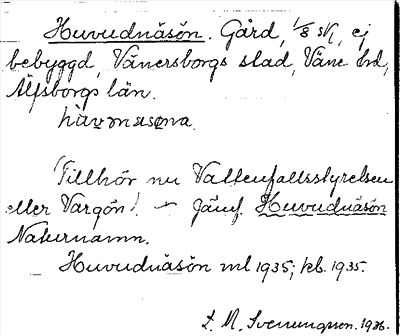 Huvudnäsön. Gård, 1/8 sk, ej
bebyggd, Vänersborgs stad, Väne hd,
Älfsborgs län.
(Tillhör nu Vattenfallsstyrelsen
eller Vargön! — Jämf. Huvudnäsön
Naturnamn.
Huvudnäsön ml 1935; kb. 1935.
L. M. Svenungsson. 1936.